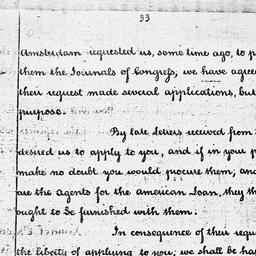 33
Amsterdam requested us, some time ago, to p
them the Journals of Congress; we have agree
their request made several applications, but
purpose.
By late letters received from
desired us to apply to you, and if in your p
make no doubt you would procure them; and
are the agents for the American Loan, they th
ought to be furnished with them.
In consequence of their requ
the liberty of applying to you; we shall be ha